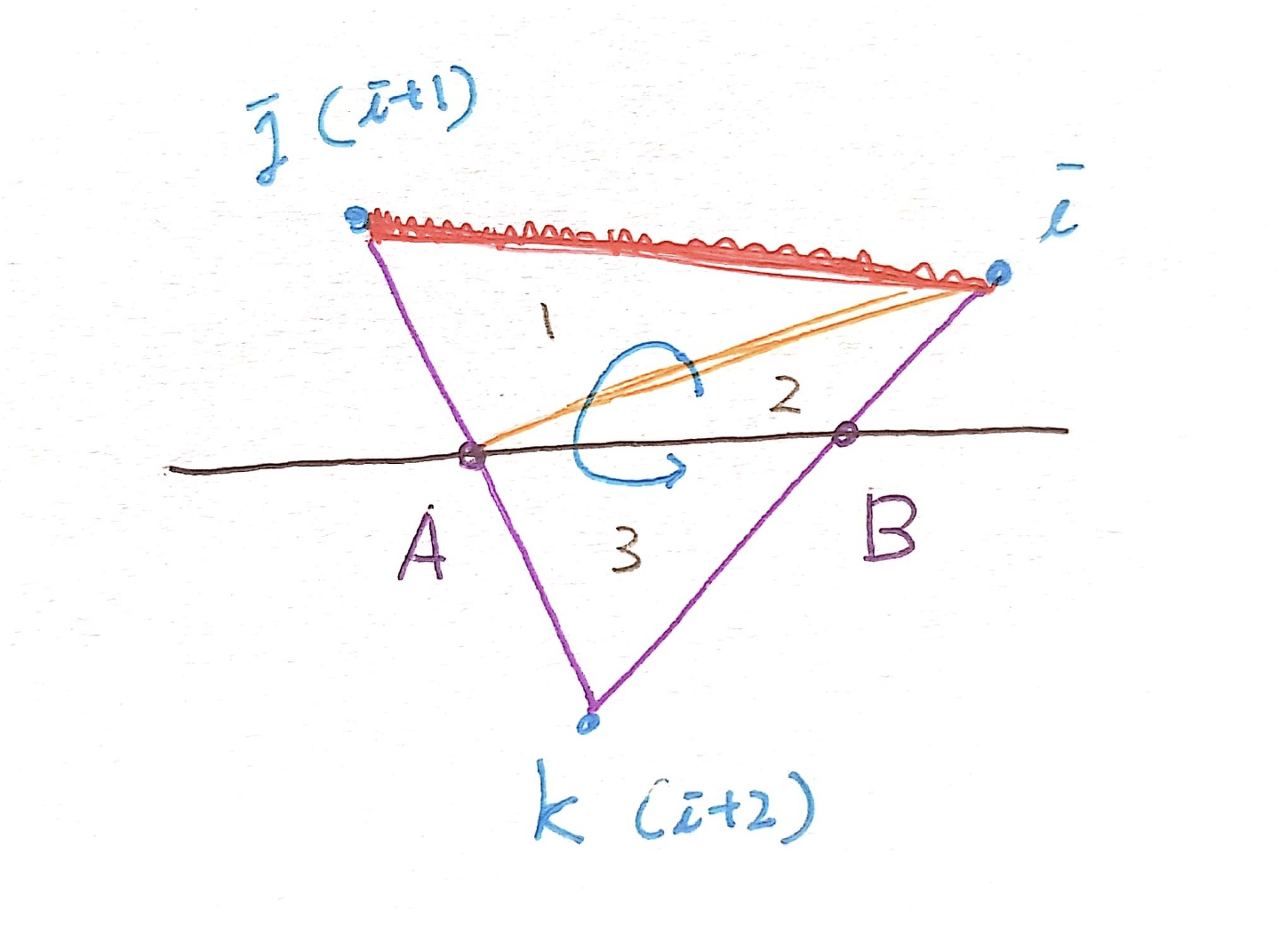 j (i+1)
i
1
2
A
B
3
k (i+2)